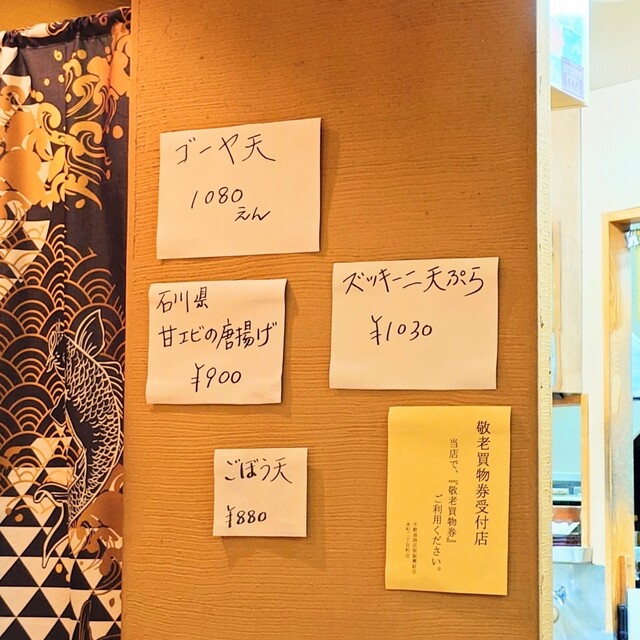 ゴーヤ天
1080
えん
石川県
甘エビの唐揚げ
¥900
ズッキーニ天ぷら
¥1030
ごぼう天
¥880
敬老買物券受付店
当店で、『敬老買物券』
ご利用ください。